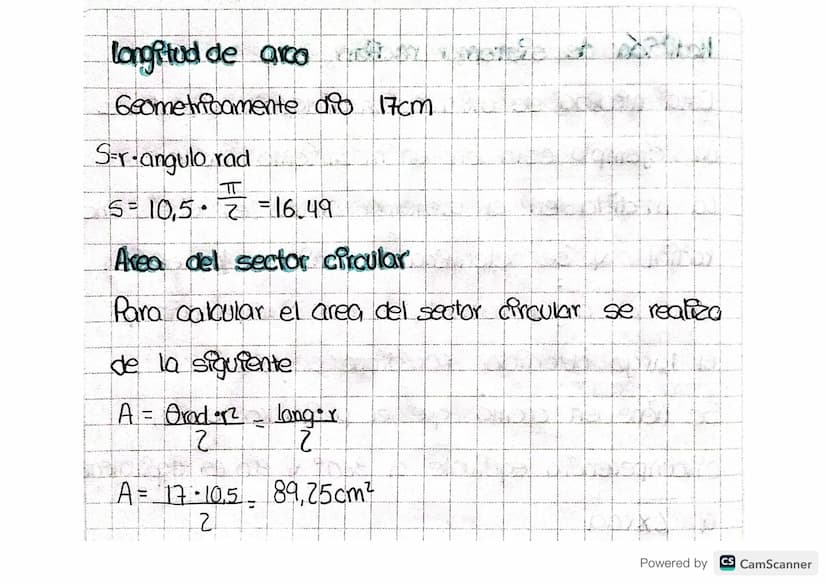 longitud de arco
Geometricamente dio 17cm
S=r·angulo rad
S= 10,5 · π/2 =16.49
Area del sector circular
Para calcular el area del sector circular se realiza
de la siguiente
A = θrad·r2/2 = long·r/2
A= 17·10,5/2 = 89,25cm²
Powered by CS CamScanner